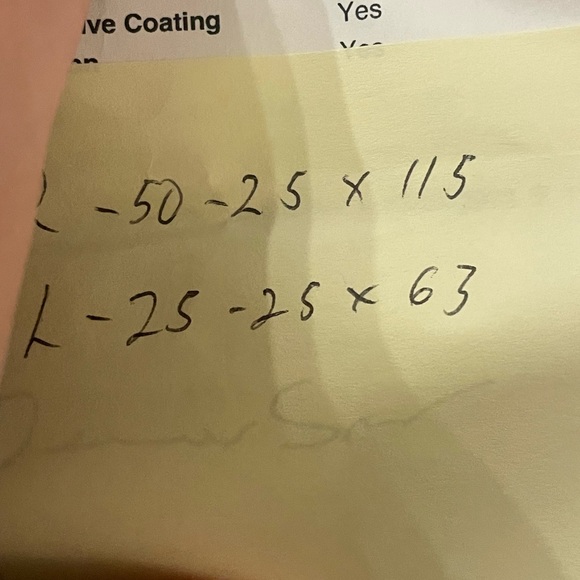 ive Coating Yes
-50 -25 x 115
L -25 -25 x 63